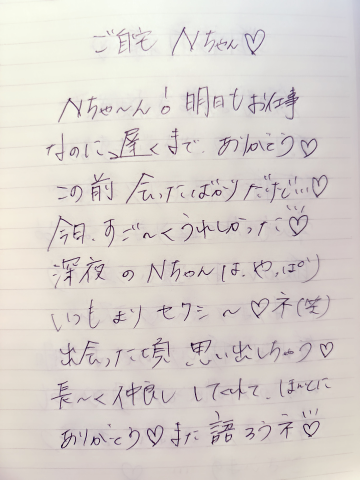 ご自宅 Nちゃん♡
Nちゃ〜ん! 明日もお仕事
なのに、遅くまで、ありがとう♡
この前 会ったばかりだけど…♡
今日、すご〜くうれしかった♡
深夜のNちゃんは、やっぱり
いつもよりセクシ〜♡ネ(笑)
出会った頃 思い出しちゃう♡
長〜く仲良し してくれて、ほんとに
ありがとう♡また 語ろうネ♡